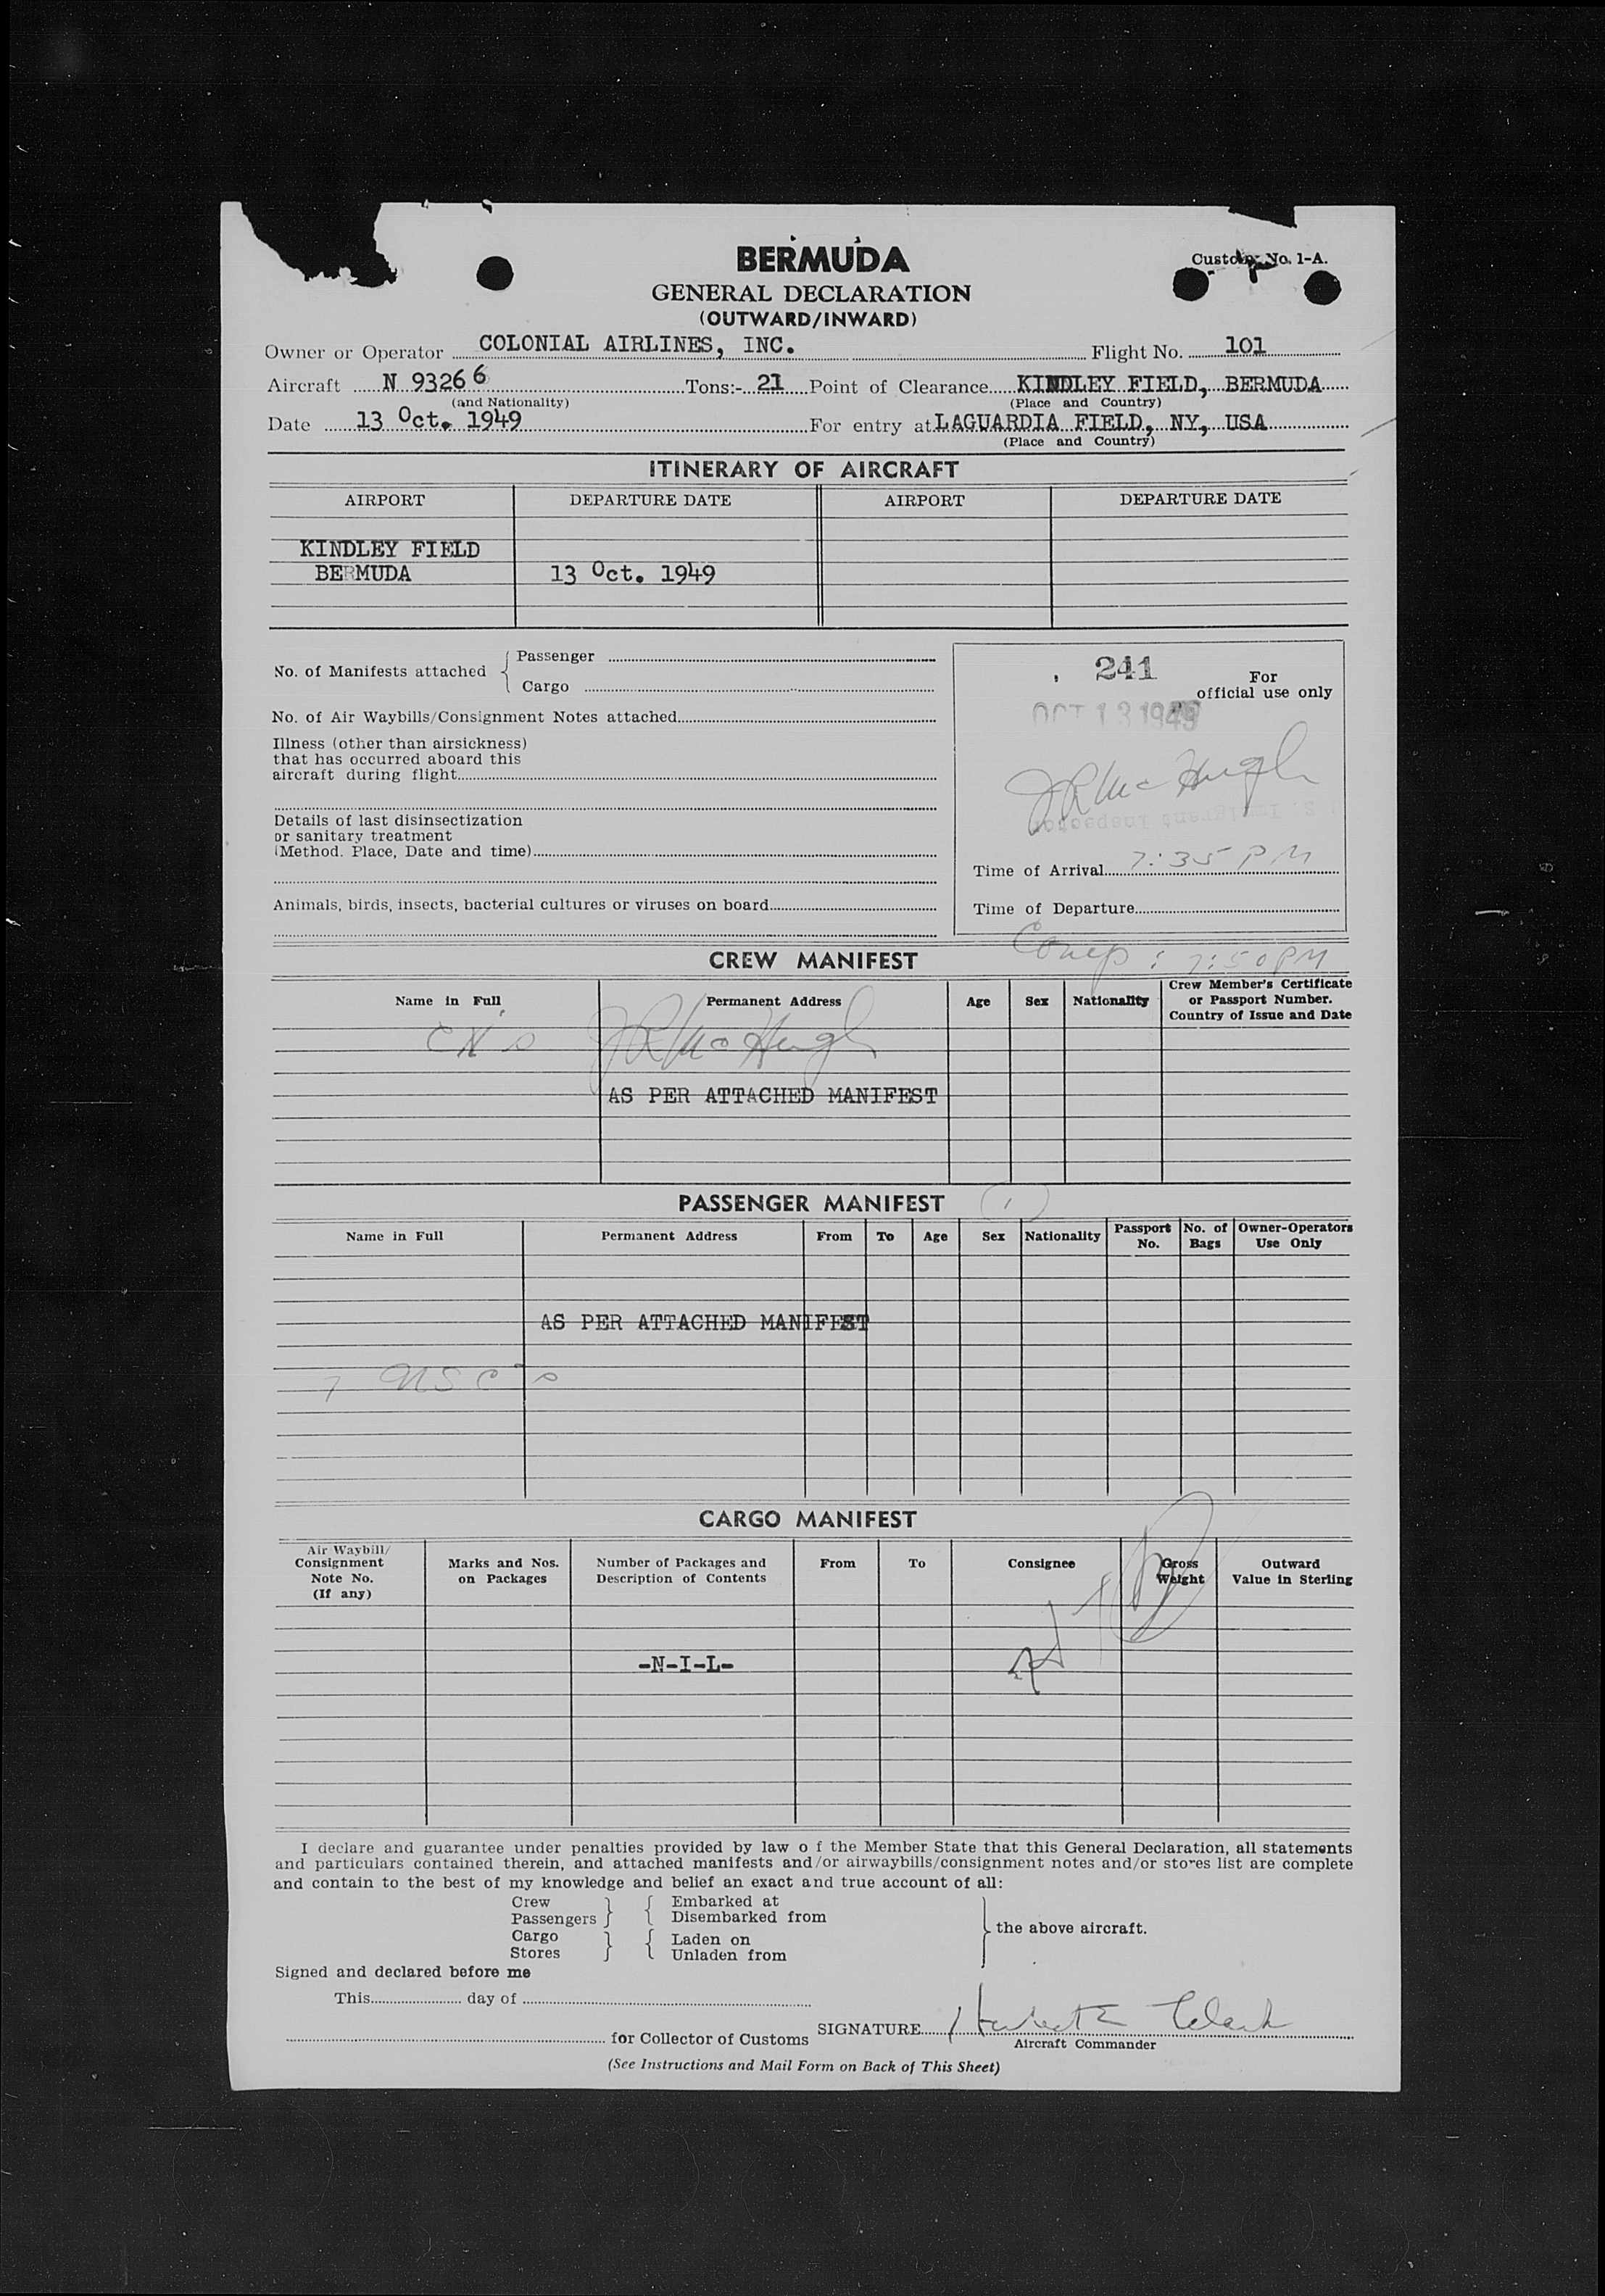 BERMUDA
Customs No. 1-A.
GENERAL DECLARATION
(OUTWARD/INWARD)
Owner or Operator COLONIAL AIRLINES, INC. Flight No. 101
Aircraft N 93266 Tons:- 21 Point of Clearance KINDLEY FIELD, BERMUDA
(and Nationality) (Place and Country)
Date 13 Oct. 1949 For entry at LAGUARDIA FIELD, NY, USA
(Place and Country)
ITINERARY OF AIRCRAFT
AIRPORT DEPARTURE DATE AIRPORT DEPARTURE DATE
KINDLEY FIELD
BERMUDA 13 Oct. 1949
No. of Manifests attached { Passenger
Cargo
No. of Air Waybills/Consignment Notes attached
Illness (other than airsickness)
that has occurred aboard this
aircraft during flight
Details of last disinsectization
or sanitary treatment
(Method. Place, Date and time)
Animals, birds, insects, bacterial cultures or viruses on board
241 For
official use only
OCT 13 1949
J R McHugh
U. S. Immigrant Inspector
Time of Arrival 7:35 PM
Time of Departure
Comp : 7:50 PM
CREW MANIFEST
Name in Full Permanent Address Age Sex Nationality Crew Member's Certificate
or Passport Number.
Country of Issue and Date
J R McHugh
AS PER ATTACHED MANIFEST
PASSENGER MANIFEST (1)
Name in Full Permanent Address From To Age Sex Nationality Passport No. No. of Bags Owner-Operators Use Only
AS PER ATTACHED MANIFEST
7 USC's
CARGO MANIFEST
Air Waybill/
Consignment
Note No.
(If any)
Marks and Nos.
on Packages
Number of Packages and
Description of Contents
From To Consignee
Gross
Weight
Outward
Value in Sterling
-N-I-L-
I declare and guarantee under penalties provided by law o f the Member State that this General Declaration, all statements
and particulars contained therein, and attached manifests and/or airwaybills/consignment notes and/or stores list are complete
and contain to the best of my knowledge and belief an exact and true account of all:
Crew } { Embarked at
Passengers } { Disembarked from
} the above aircraft.
Cargo } { Laden on
Stores } { Unladen from
Signed and declared before me
This day of
for Collector of Customs SIGNATURE Clark
Aircraft Commander
(See Instructions and Mail Form on Back of This Sheet)